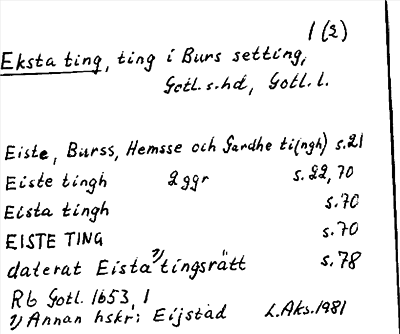 1(2)
Eksta ting, ting i Burs setting,
Gotl.s.hd, Gotl.l.
Eiste, Burss, Hemsse och Gardhe ti(ngh) s.21
Eiste tingh 2 ggr s.22,70
Eista tingh s.70
EISTE TING s.70
daterat Eista¹⁾tingsrätt s.78
Rb Gotl. 1653, 1
1) Annan hskr: Eijstad L.Aks.1981